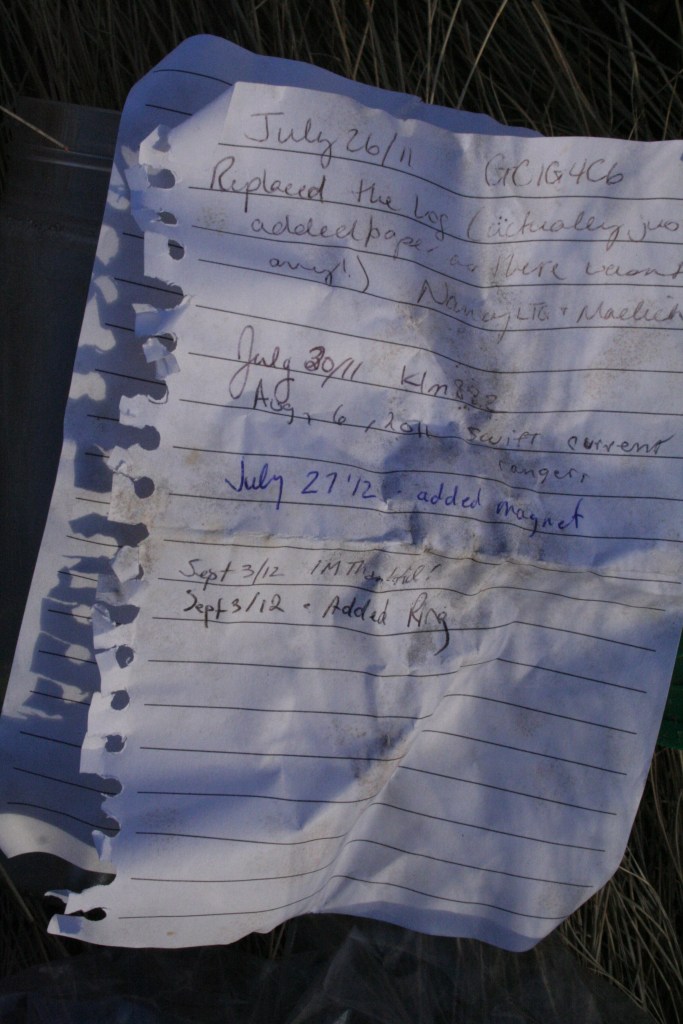 July 26/11 GC1G4C6
Replaced the Log (actually jus
added paper, as there wasnt
any!) Nancy
July 30/11 Kln222
Aug. 6, 2011 swift current
rangers
July 27 '12 - added magnet
Sept 3/12 IMThankful!
Sept 3/12 - Added Ring